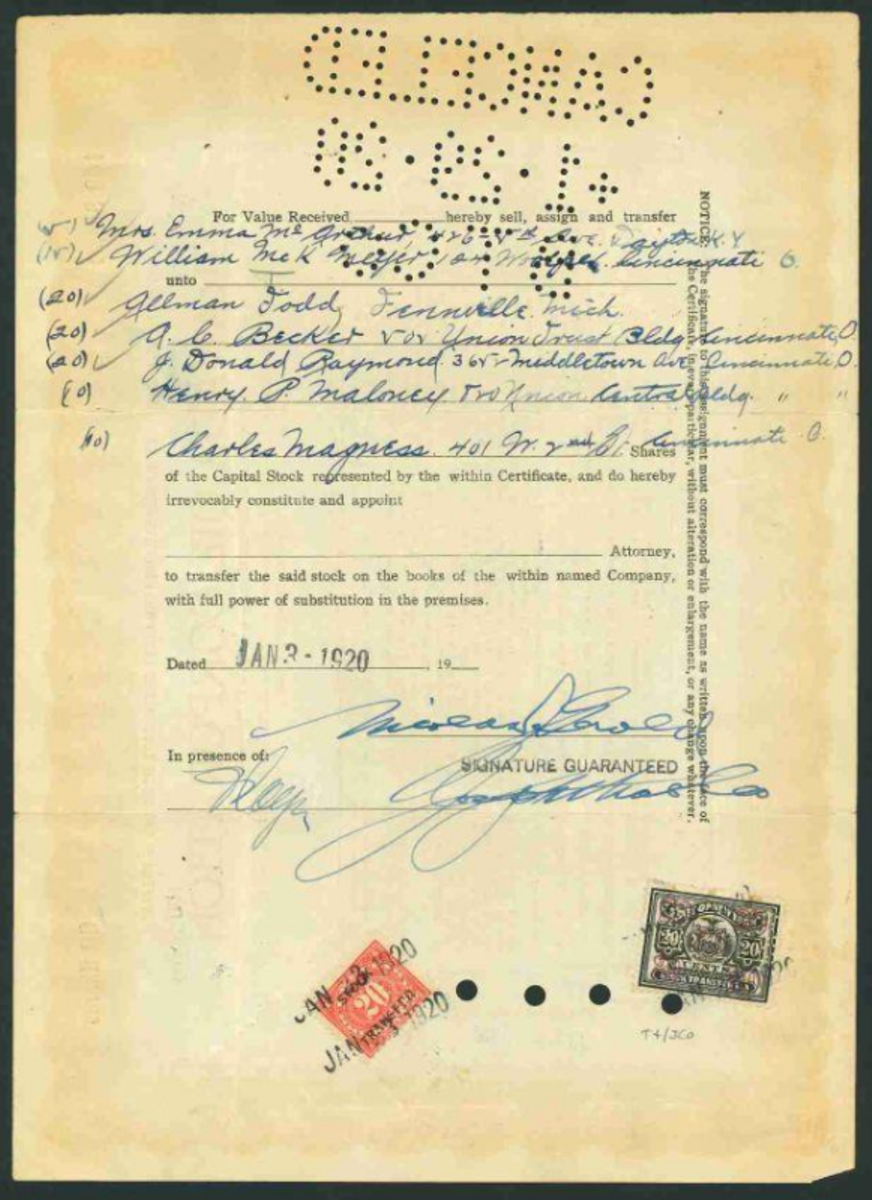 For Value Received hereby sell, assign and transfer
Mrs. Emma Mc Arthur, 426-5th Ave. Dayton K.Y
(15) William McK Geyer Cincinnati O.
unto
(20) Allman Todd, Fennville Mich.
(20) A. C. Becker 505 Union Trust Bldg Cincinnati, O.
(20) J. Donald Raymond 365 Middletown Ave Cincinnati, O.
(10) Henry P. Maloney Union Central Bldg. " "
(10) Charles Magness. 401 W. 2nd St. Cincinnati O. Shares
of the Capital Stock represented by the within Certificate, and do hereby
irrevocably constitute and appoint
Attorney,
to transfer the said stock on the books of the within named Company,
with full power of substitution in the premises.
Dated JAN 3 - 1920, 19
In presence of:
SIGNATURE GUARANTEED
NOTICE: The signature to this assignment must correspond with the name as written upon the face of
the Certificate, in every particular, without alteration or enlargement, or any change whatever.
20
CENTS
20
STOCK TRANSFER
JAN 3 1920
20
TRANSFER
JAN 3 1920
T4/JCO